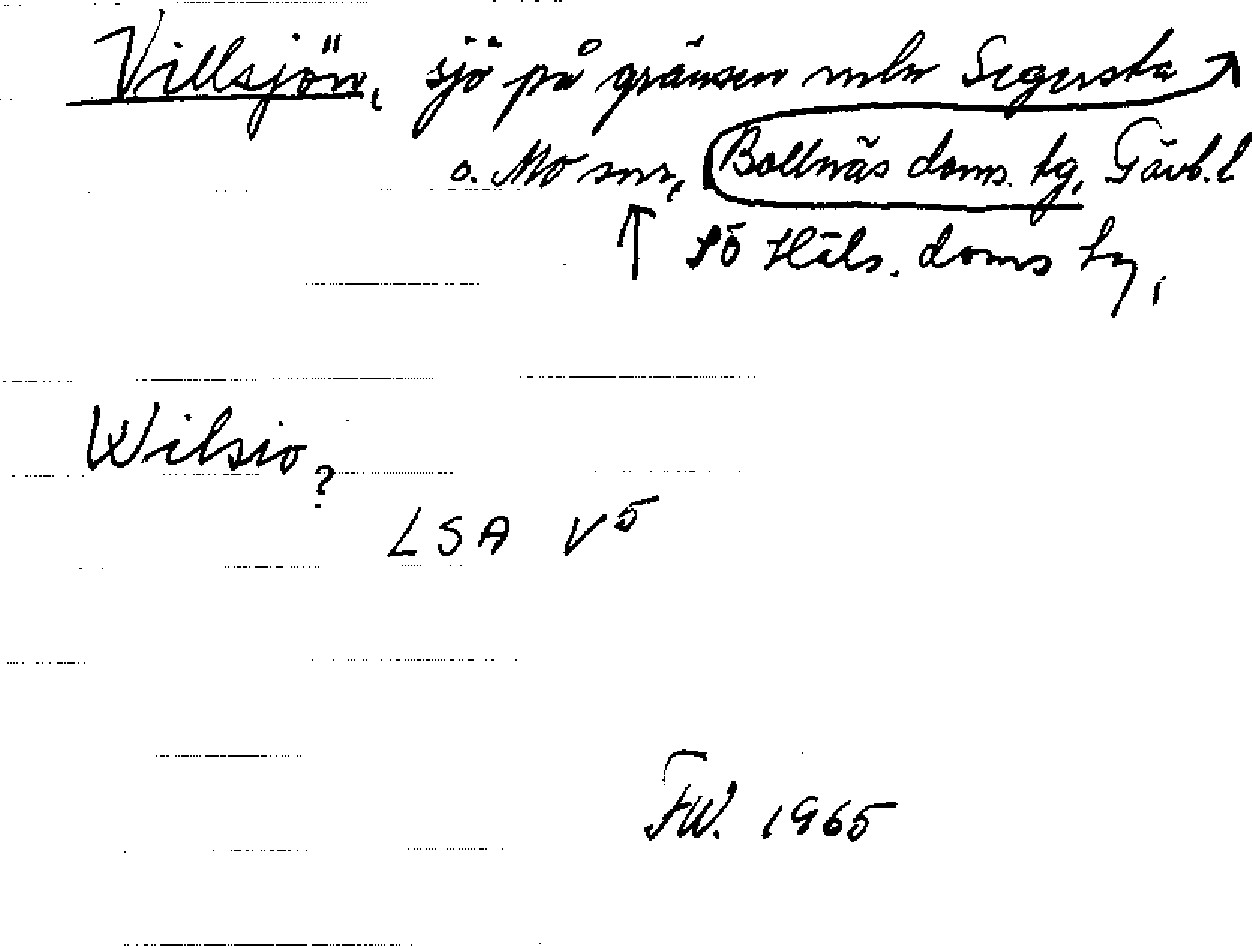 Villsjön, sjö på gränsen mln Segersta
o. Mo snr, Bollnäs doms. hg, Gävb.l
SÖ Häls. doms hg,
Wilsio?
LSA V5
FW. 1965